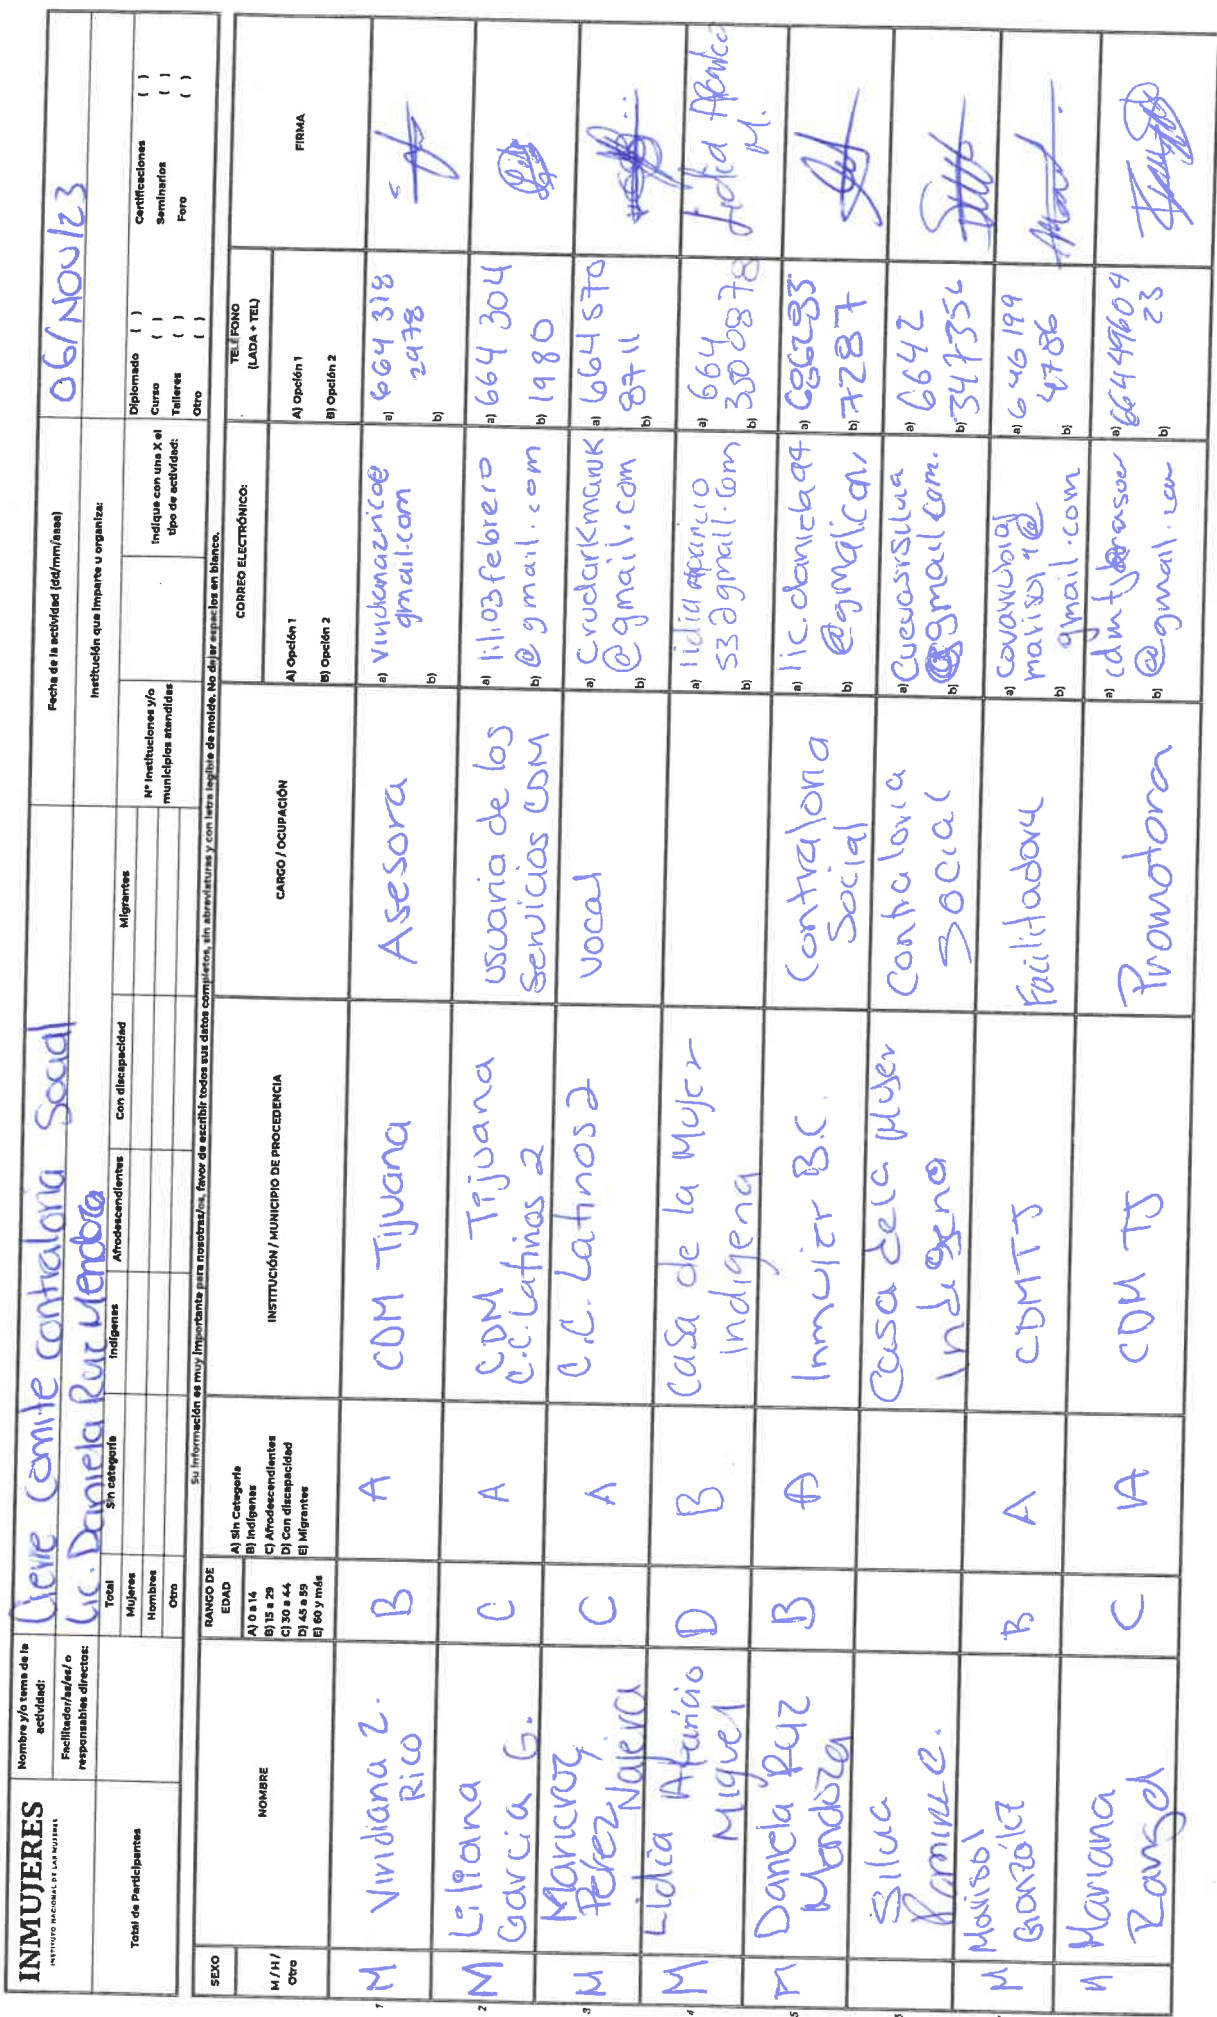 INMUJERES
INSTITUTO NACIONAL DE LAS MUJERES
Nombre y/o tema de la actividad:
Cierre Comite Contraloria Social
Fecha de la actividad (dd/mm/aaaa)
06/NOV/23
Facilitador/as/es/ o responsables directos:
Lic. Daniela Ruiz Mendoza
Institución que imparte u organiza:
Total de Participantes
Total
Sin categoría
Indígenas
Afrodescendientes
Con discapacidad
Migrantes
Mujeres
Hombres
Otro
N° Instituciones y/o municipios atendidos
Indique con una X el tipo de actividad:
Diplomado ( )
Curso ( )
Talleres ( )
Otro ( )
Certificaciones ( )
Seminarios ( )
Foro ( )
Su información es muy importante para nosotras/os, favor de escribir todos sus datos completos, sin abreviaturas y con letra legible de molde. No dejar espacios en blanco.
SEXO
M / H / Otro
NOMBRE
RANGO DE EDAD
A) 0 a 14
B) 15 a 29
C) 30 a 44
D) 45 a 59
E) 60 y más
A) Sin Categoría
B) Indígenas
C) Afrodescendientes
D) Con discapacidad
E) Migrantes
INSTITUCIÓN / MUNICIPIO DE PROCEDENCIA
CARGO / OCUPACIÓN
CORREO ELECTRÓNICO:
A) Opción 1
B) Opción 2
TELÉFONO (LADA + TEL)
A) Opción 1
B) Opción 2
FIRMA
1 M Viridiana Z. Rico B A CDM Tijuana Asesora
a) vindanazrico@
gmail.com
b)
a) 664 318
2978
b)
2 M Liliana Garcia G. C A CDM Tijuana C.C. Latinos 2 usuaria de los Servicios CDM
a) lili03febrero
b) @gmail.com
a) 664 304
b) 1980
3 M Maricruz Pérez Najera C A C.C. Latinos 2 vocal
a) Crudarkmawk
@gmail.com
b)
a) 664 570
8711
b)
4 M Lidia Aparicio Miguel D B Casa de la Mujer indígena
a) lidia aparicio
53@gmail.com
b)
a) 664
b) 3300878
Lidia Aparicio M.
5 M Daniela Ruiz Mendoza B A Inmujer B.C. Contraloria Social
a) lic.danicha94
b) @gmail.com
a) 686283
b) 77287
Silvia Ramirez C. Casa de la Mujer Indigena Contraloria Social
a) Cuevassilvia
b) @gmail.com.
a) 6642
b) 347356
M Marisol González B A CDMTJ Facilitadora
a) covarrubias
marisol9@
b) gmail.com
a) 646 199
4786
b)
M Mariana Rangel C A CDM TJ Promotora
a)
b) @gmail.com
a) 66449609
23
b)